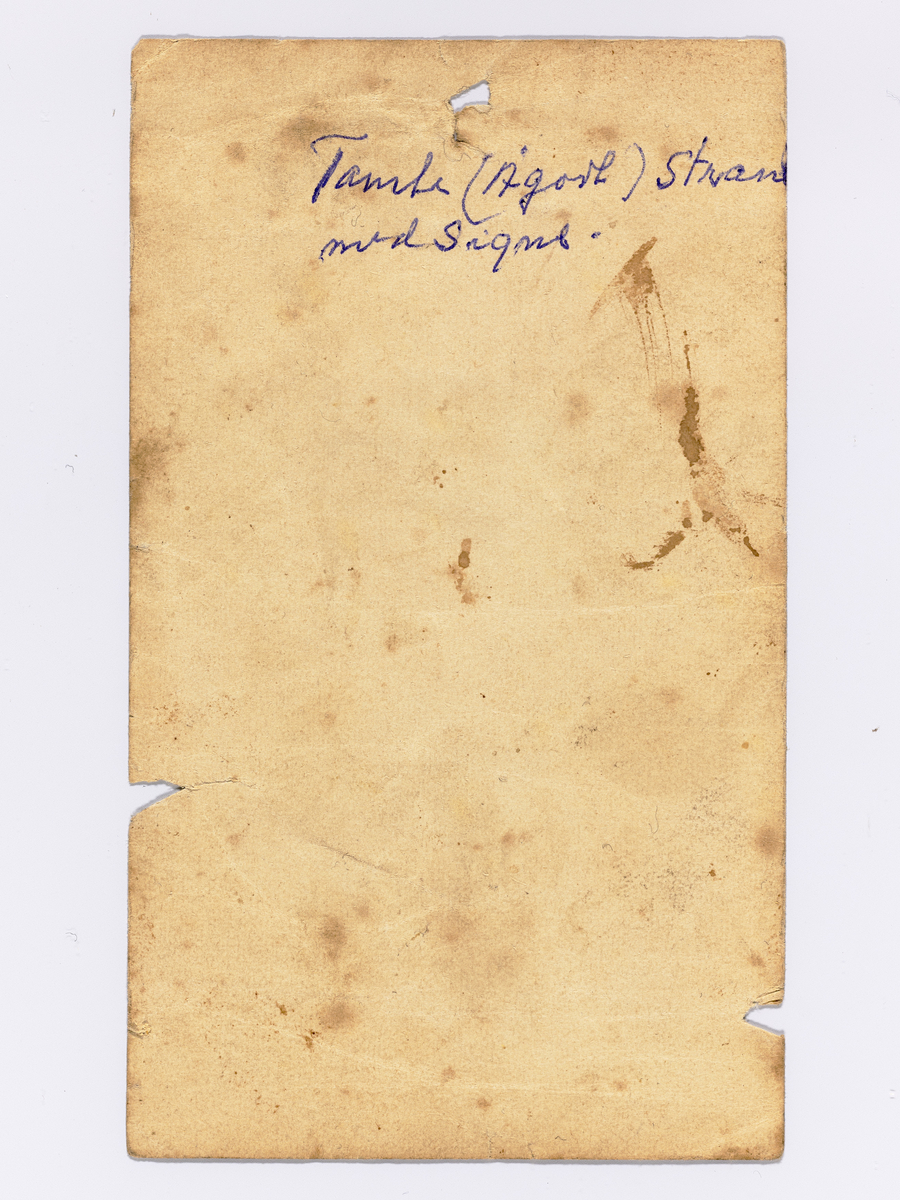 Tante (Ågodt) Strand
med Signe.